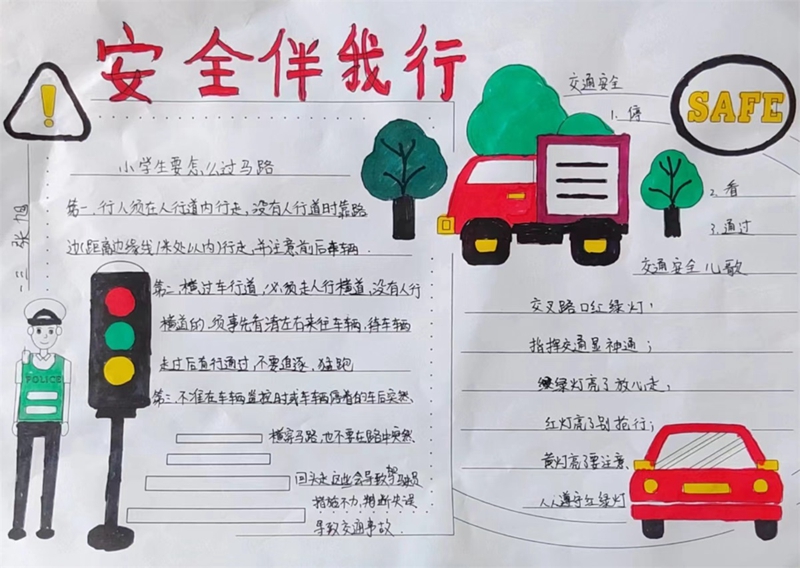 安全伴我行
!
一三 张旭
小学生要怎么过马路
第一.行人须在人行道内行走,没有人行道时靠路
边(距离边缘线1米处以内)行走,并注意前后车辆.
第二横过车行道,必须走人行横道,没有人行
横道的.须事先看清左右来往车辆,待车辆
走过后直行通过,不要追逐、猛跑
第三.不准在车辆临近时或车辆停着的车后突然
横穿马路,也不要在路中突然
回头走这些会导致驾驶员
措施不力,判断失误
导致交通事故.
POLICE
交通安全
1.停
2.看
3.通过
SAFE
交通安全儿歌
交叉路口红绿灯:
指挥交通显神通;
绿灯亮了放心走;
红灯亮了别抢行;
黄灯亮了要注意.
人人遵守红绿灯